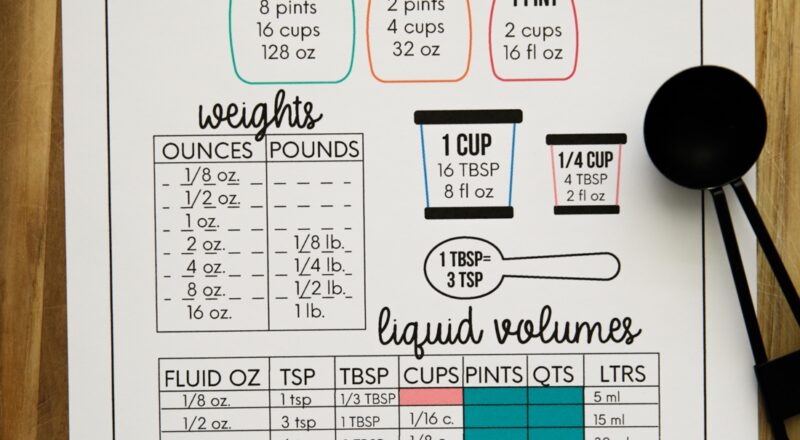 8 pints
16 cups
128 oz
2 pints
4 cups
32 oz
1 PINT
2 cups
16 fl oz
weights
OUNCES POUNDS
1/8 oz.
1/2 oz.
1 oz.
2 oz. 1/8 lb.
4 oz. 1/4 lb.
8 oz. 1/2 lb.
16 oz. 1 lb.
1 CUP
16 TBSP
8 fl oz
1/4 CUP
4 TBSP
2 fl oz
1 TBSP=
3 TSP
liquid volumes
FLUID OZ TSP TBSP CUPS PINTS QTS LTRS
1/8 oz. 1 tsp 1/3 TBSP 5 ml
1/2 oz. 3 tsp 1 TBSP 1/16 c. 15 ml